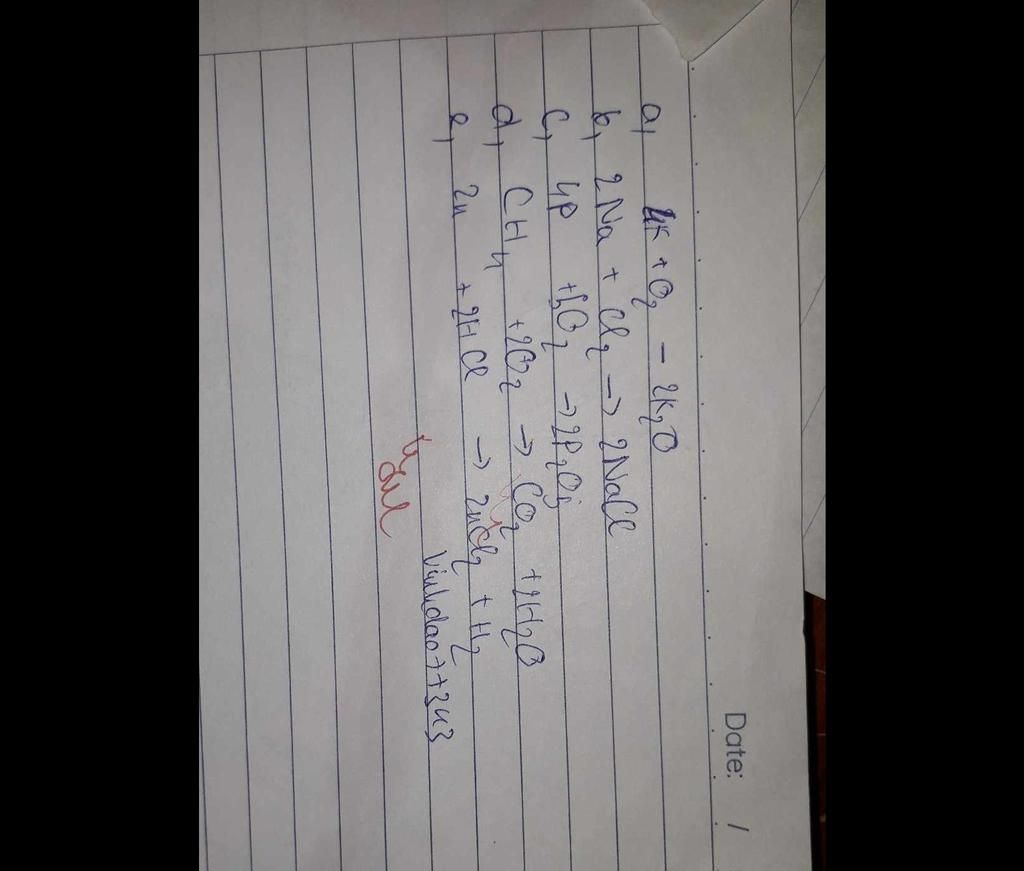 Date: /
a, 4K + O2 - 2K2O
b, 2Na + Cl2 -> 2NaCl
c, 4P + 5O2 -> 2P2O5
d, CH4 + 2O2 -> CO2 + 2H2O
e, Zn + 2HCl -> ZnCl2 + H2
Vinhdao7+3u3